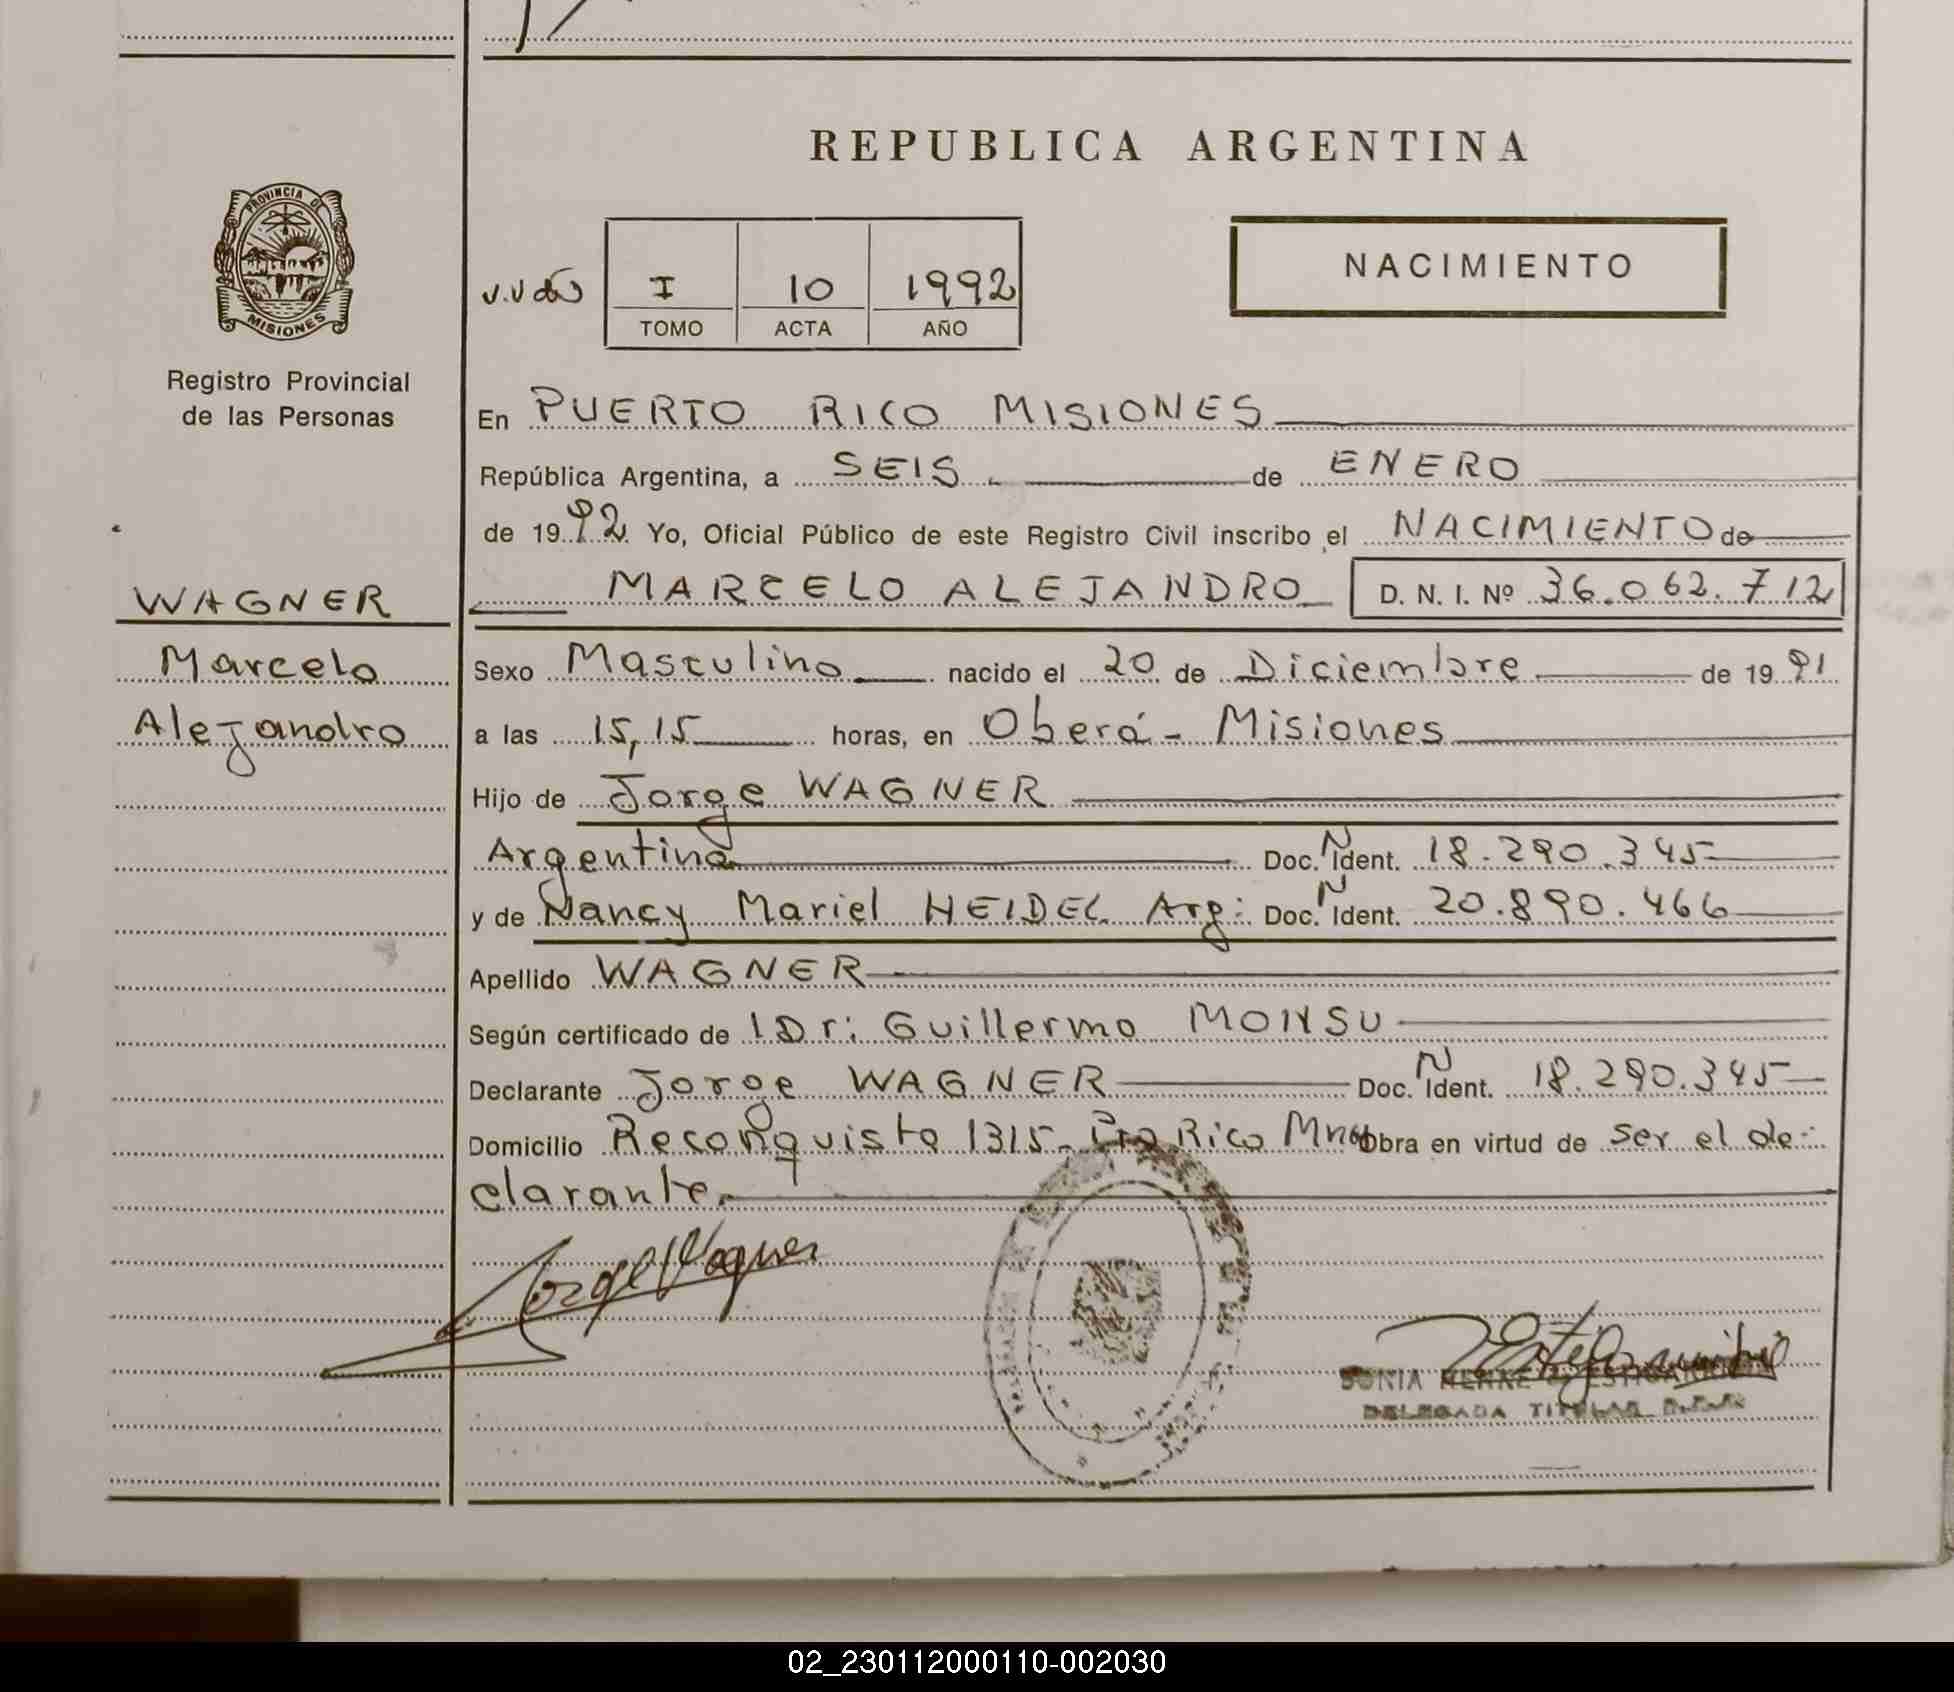 REPUBLICA ARGENTINA
PROVINCIA DE
MISIONES
Registro Provincial
de las Personas
I 10 1992
TOMO ACTA AÑO
NACIMIENTO
En PUERTO RICO MISIONES
República Argentina, a SEIS de ENERO
de 1992 Yo, Oficial Público de este Registro Civil inscribo el NACIMIENTO de
MARCELO ALEJANDRO D. N. I. Nº 36.062.712
WAGNER
Marcelo
Alejandro
Sexo Masculino nacido el 20 de Diciembre de 1991
a las 15,15 horas, en Oberá - Misiones
Hijo de Jorge WAGNER
Argentina Doc. N Ident. 18.290.345
y de Nancy Mariel HEIDEL Arg: Doc. N Ident. 20.890.466
Apellido WAGNER
Según certificado de l Dr: Guillermo MONSU
Declarante Jorge WAGNER Doc. N Ident. 18.290.345
Domicilio Reconquista 1315- Pto Rico Mnes Obra en virtud de ser el de-
clarante.
Jorge Wagner
SONIA
DELEGADA TITULAR R.P.P.
02_230112000110-002030